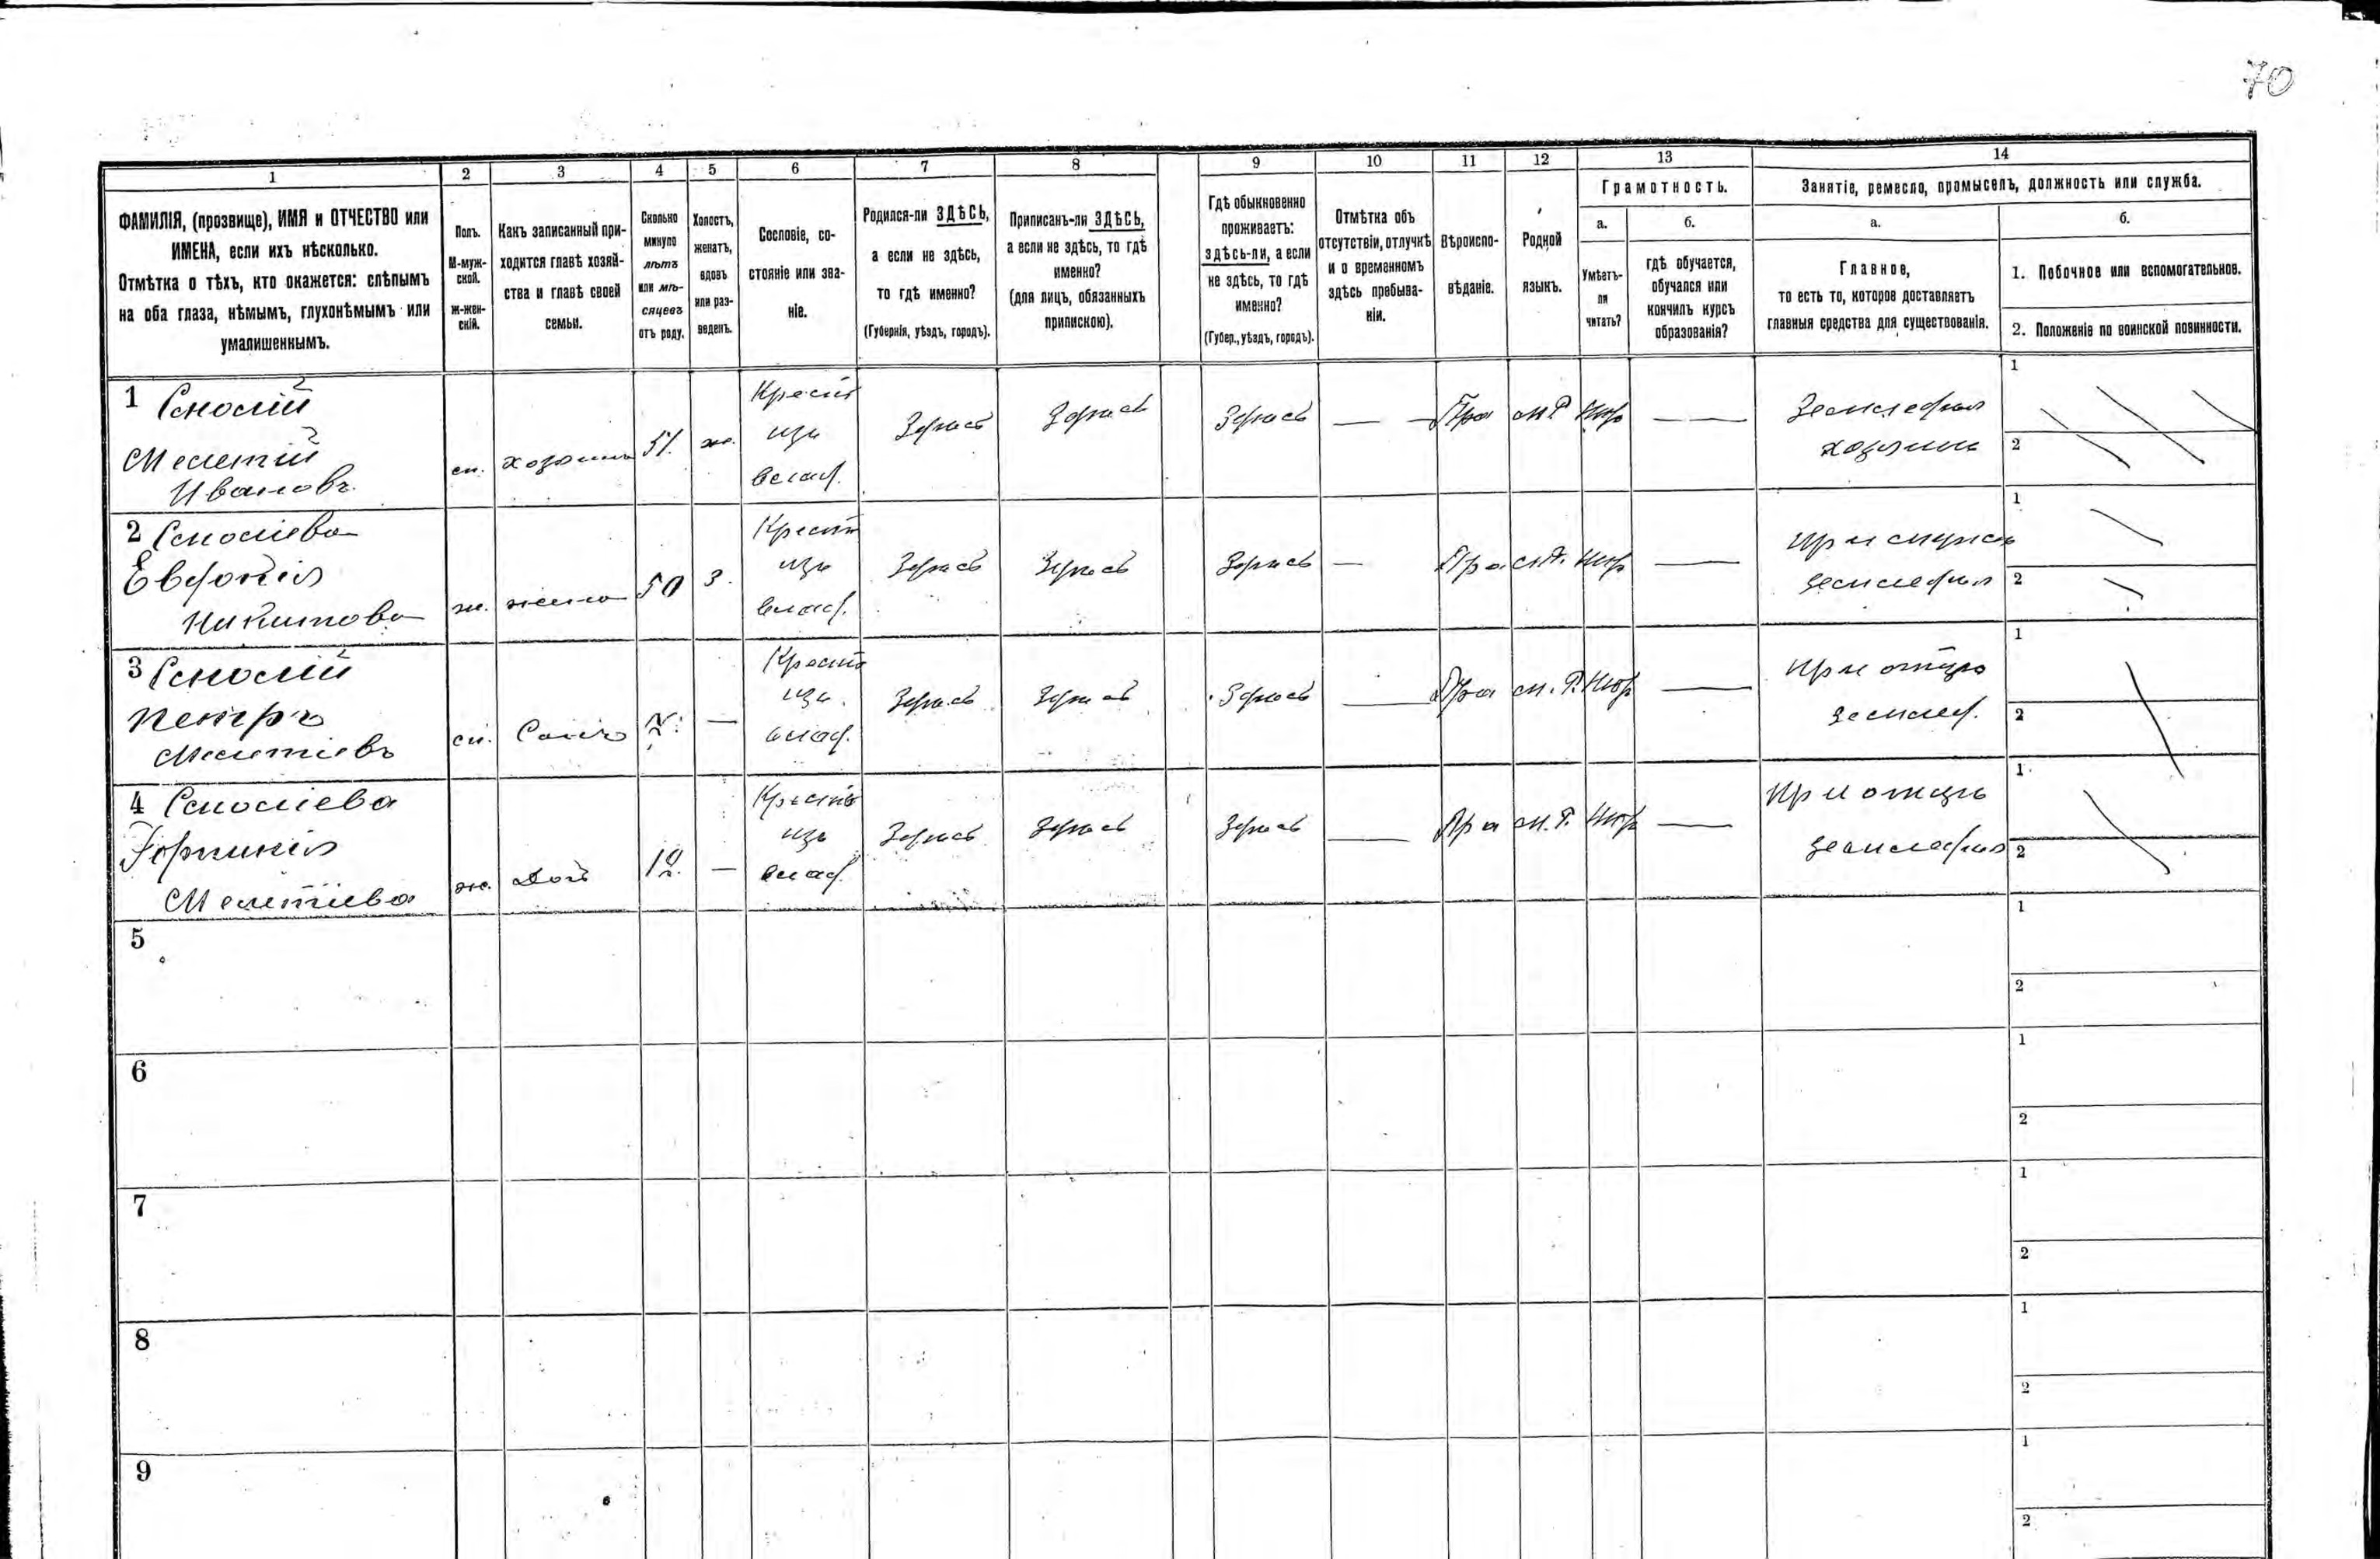 70
1 2 3 4 5 6 7 8 9 10 11 12 13 14
ФАМИЛІЯ, (прозвище), ИМЯ и ОТЧЕСТВО или
ИМЕНА, если ихъ нѣсколько.
Отмѣтка о тѣхъ, кто окажется: слѣпымъ
на оба глаза, нѣмымъ, глухонѣмымъ или
умалишеннымъ.
Полъ.
М-муж-
ской.
Ж-жен-
скій.
Какъ записанный при-
ходится главѣ хозяй-
ства и главѣ своей
семьи.
Сколько
минуло
лѣтъ
или мѣ-
сяцевъ
отъ роду.
Холостъ,
женатъ,
вдовъ
или раз-
веденъ.
Сословіе, со-
стояніе или зва-
ніе.
Родился-ли ЗДѢСЬ,
а если не здѣсь,
то гдѣ именно?
(Губернія, уѣздъ, городъ).
Приписанъ-ли ЗДѢСЬ,
а если не здѣсь, то гдѣ
именно?
(для лицъ, обязанныхъ
припискою).
Гдѣ обыкновенно
проживаетъ:
здѣсь-ли, а если
не здѣсь, то гдѣ
именно?
(Губер., уѣздъ, городъ).
Отмѣтка объ
отсутствіи, отлучкѣ
и о временномъ
здѣсь пребыва-
ніи.
Вѣроиспо-
вѣданіе.
Родной
языкъ.
Грамотность.
а.
Умѣетъ-
ли
читать?
б.
гдѣ обучается,
обучался или
кончилъ курсъ
образованія?
Занятіе, ремесло, промыселъ, должность или служба.
а.
Главное,
то есть то, которое доставляетъ
главныя средства для существованія.
б.
1. Побочное или вспомогательное.
2. Положеніе по воинской повинности.
1
Мелетій
Ивановъ
м. хозяинъ 51. ж.
Крестя
изъ
влад.
Здѣсь Здѣсь Здѣсь — Пра м.Р. — хозяинъ
1
2
2
Евдокія
Никитова
ж. жена 50 З.
Крестя
изъ
влад.
Здѣсь Здѣсь Здѣсь — Пра —
1
2
3
Петръ
Мелетіевъ
м. Сынъ —
Крестя
изъ
влад.
Здѣсь Здѣсь Здѣсь — Пра м.Р. — при отцѣ
землед.
1
2
4
Мелетіева
ж. Дочь 12. —
Крестя
изъ
влад.
Здѣсь Здѣсь Здѣсь — Пра м.Р. — при отцѣ
1
2
5
1
2
6
1
2
7
1
2
8
1
2
9
1
2